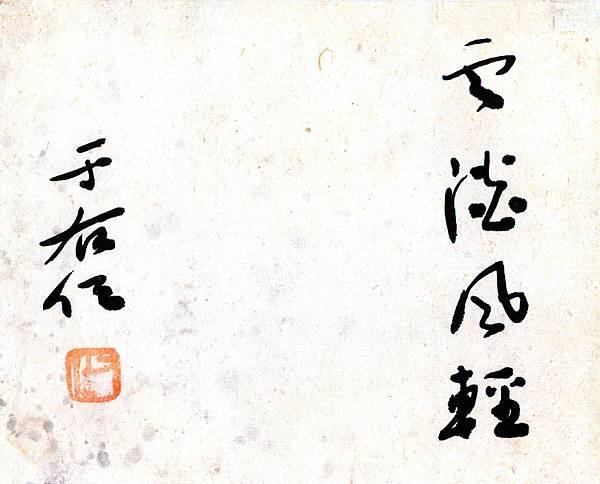 雲澹風輕
于右任